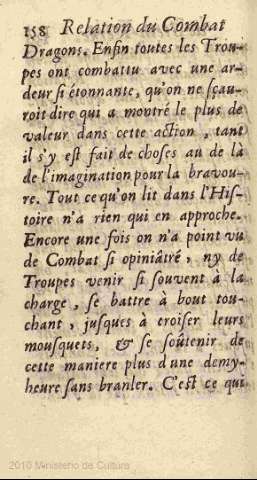 158 Relation du Combat
Dragons. Enfin toutes les Trou-
pes ont combattu avec une ar-
deur si étonnante, qu'on ne sçau-
roit dire qui a montré le plus de
valeur dans cette action, tant
il s'y est fait de choses au de là
de l'imagination pour la bravou-
re. Tout ce qu'on lit dans l'His-
toire n'a rien qui en approche.
Encore une fois on n'a point vu
de Combat si opiniâtré, ny de
Troupes venir si souvent à la
charge, se battre à bout tou-
chant, jusques à croiser leurs
mousquets, & se soûtenir de
cette maniere plus d'une demy-
heure sans branler. C'est ce qui
2010 Ministerio de Cultura